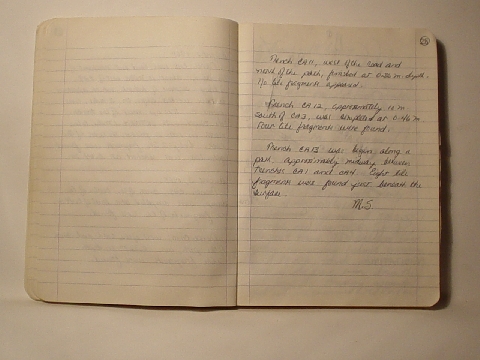 Trench CA11, west of the road and
north of the path, finished at 0.86 m. depth.
tile fragments appeared.
Trench CA12, approximately 12 m
south of CA3, was completed at 0.46 m.
Four tile fragments were found.
Trench CA13 was begun, along a
path approximately midway between
Trenches CA1 and CA4. Eight tile
fragments were found just beneath the
surface.
M.S